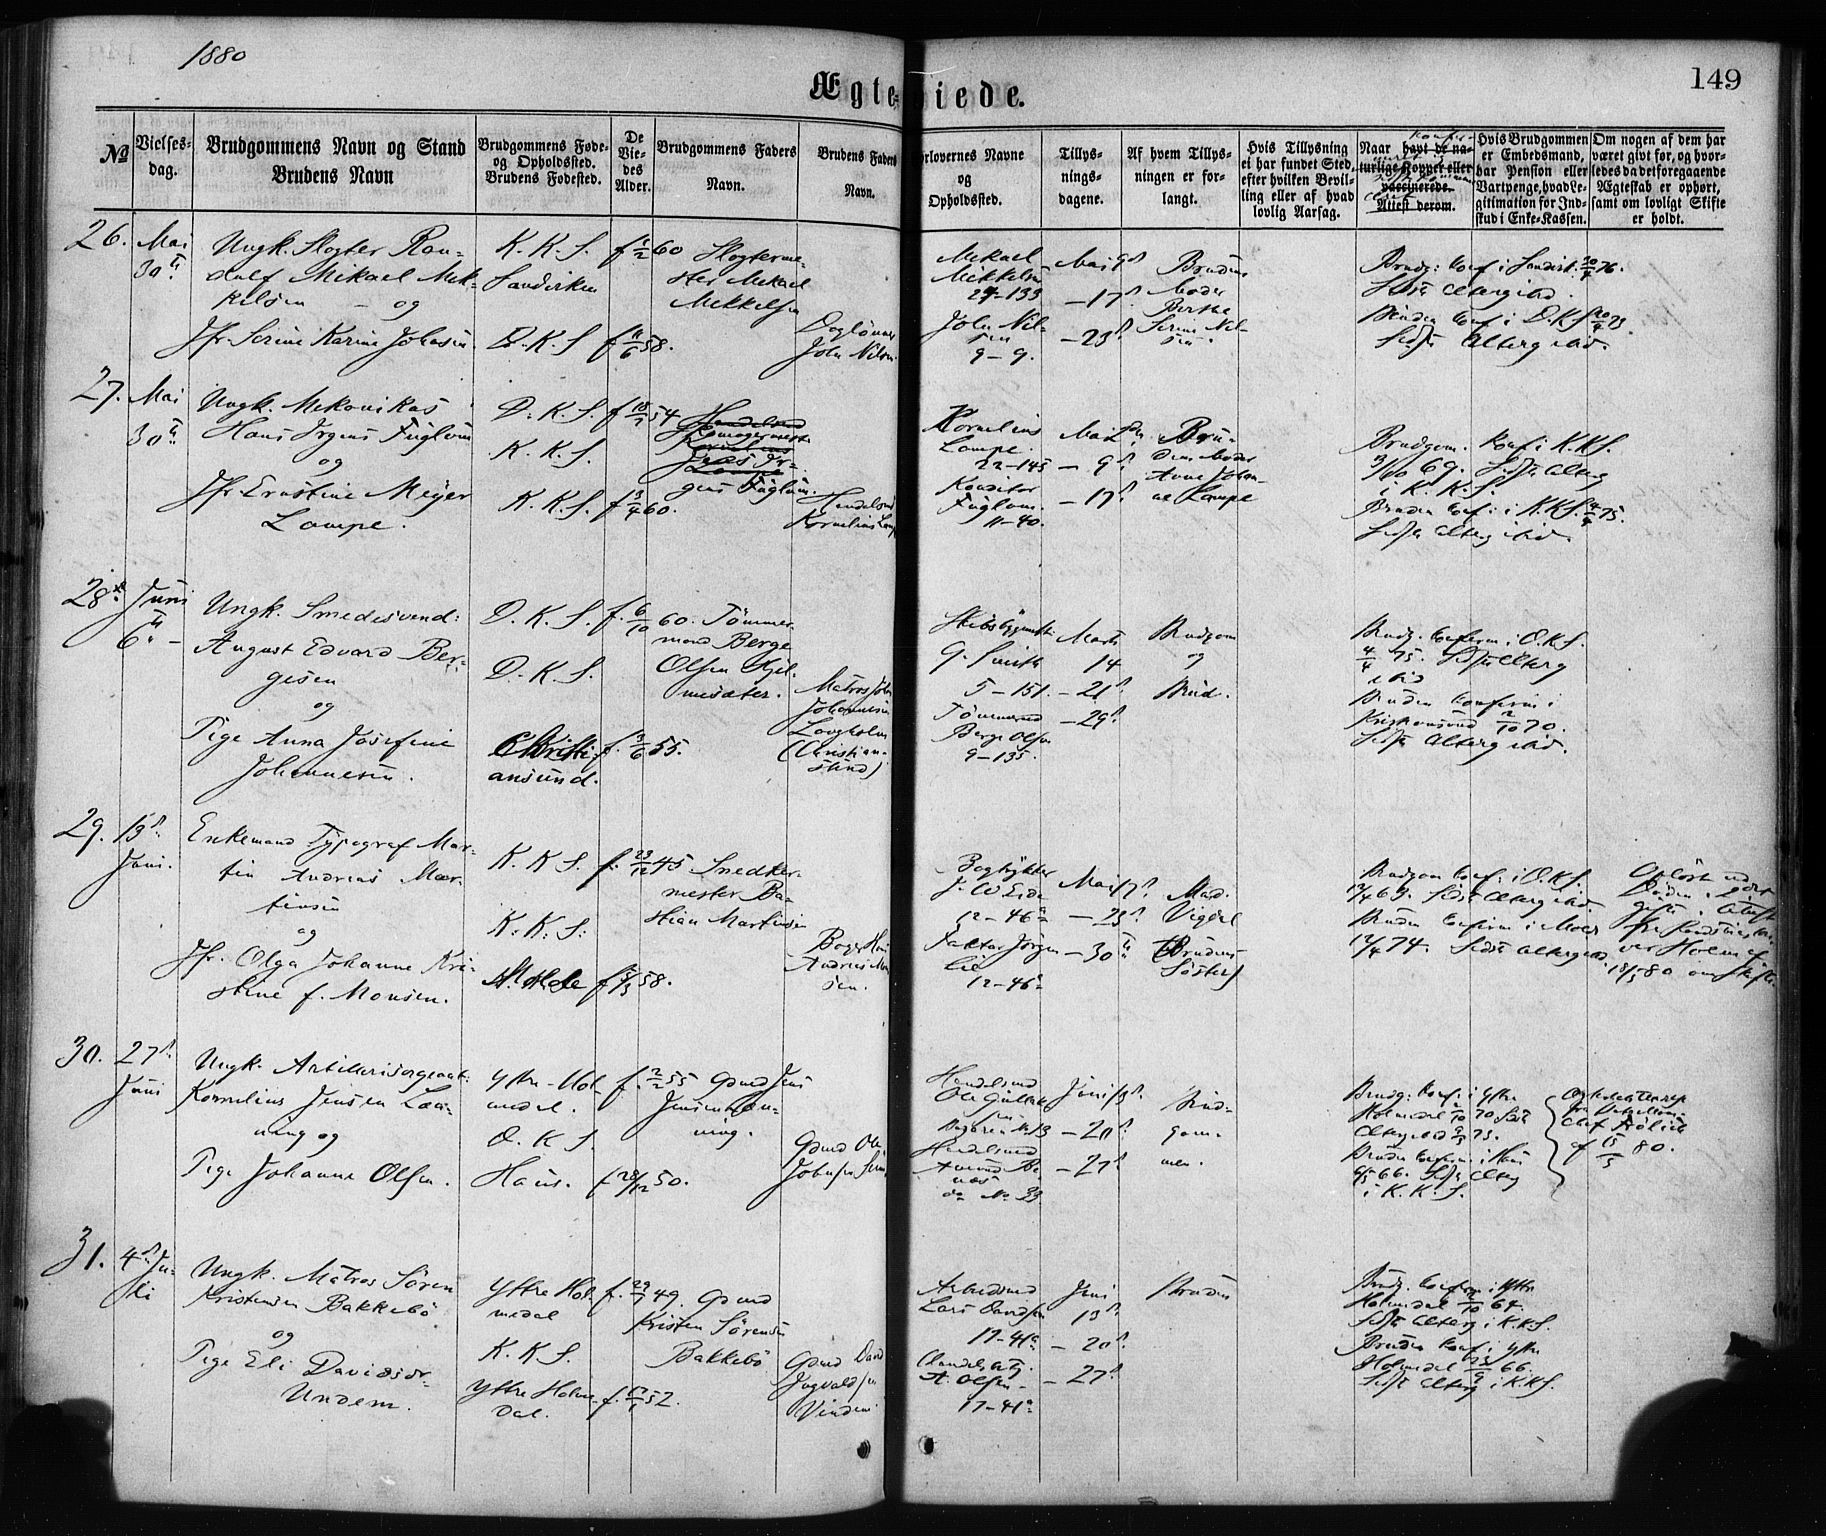 1880
149
Ægteviede.
№
Vielses-
dag.
Brudgommens Navn og Stand
Brudens Navn
Brudgommens Føde-
og Opholdssted.
Brudens Fødested.
De
Vie-
des
Alder.
Brudgommens Faders
Navn.
Brudens Faders
Navn.
orlovernes Navne
og
Opholdssted.
Tillys-
nings-
dagene.
Af hvem Tillys-
ningen er for-
langt.
Hvis Tillysning
ei har fundet Sted,
efter hvilken Bevil-
ling eller af hvad
lovlig Aarsag.
Naar havt de na-
turlige Kopper eller
vaccinerede.
Attest derom.
Hvis Brudgommen
er Embedsmand,
har Pension eller
Vartpenge, hvad Le-
gitimation for Ind-
skud i Enke-Kassen.
Om nogen af dem har
været givt før, og hvor-
ledes da det foregaaende
Ægteskab er ophørt,
samt om lovligt Skifte
er holdt.
26. Mai
30
Ungk. Slogter Ran-
dulf Mekael Mek-
kelsen og
Jfr. Serine Karine Johnsen
K. K. S.
Sandviken
D. K. S.
f. 1/2 60
f. 11/6 58.
Slogterme-
ster Mekael
Mekkelsen
Daglønner
John Nilsen
Mekael
Mekkelsen
24-133
John Nil-
sen
9-9.
Mai 9d
-17d
-23d
Brudens
Moder
Berthe
Serine Nil-
sen.
Brudg: Conf i Sandvik. 30/4 76.
Sidst Alterg ibid.
Bruden Conf i D.K.S 20/4 73
Sidst Alterg ibid.
27. Mai
30
Ungk. Mekanikas
Hans Jrgens Fuglum
og
Jfr. Ernstine Meyer
Lampe.
D. K. S.
K. K. S.
K. K. S.
f. 18/7 54
f. 3/4 60.
Jrgens Fuglum.
Handelsmd
Kornelius Lampe
Kornelius
Lampe.
22-145
Konditor
Fuglum.
11-40.
Mai 2den
- 9d
- 17d
Bru-
dens Moder
Anne Johan-
ne Lampe
Brudgom. Conf i K.K.S.
3/10 69. Sidst Alterg
i K. K. S.
Bruden Conf. i K.K.S. 4/4 75.
Sidst Alterg ibid.
28. Juni
6
Ungk. Smedesvend:
August Edvard Ber-
gesen
og
Pige Anna Josefine
Johannesen.
D. K. S.
D. K. S.
Christi-
ansund.
f. 6/10 60.
f. 3/6 55.
Tømmer-
mand Berge
Olsen Hjel-
mesæter.
Matros John
Johannesen
Langholm
(Christian-
sund)
Skibsbygmstr
G. Smith
5-151.
Tømmermd
Berge Olsen
9-135.
Marts
14
- 21d
- 29d
Brudgom
og
Brud.
Brudg. Conferm i D.K.S.
4/4 75. Sidst Alterg
ibid
Bruden Conferm i
Kristiansund 2/10 70.
Sidst Alterg ibid.
29. 13d
Juni.
Enkemand Typograf Mar-
tin Andreas Mar-
tinsen
og
Jfr. Olga Johanne Kri-
stine f. Monsen.
K. K. S.
K. K. S:
Molde
f. 23/12 45
f. 5/3 58.
Snedker-
mester Ba-
stian Martinsen
Bager Hans
Andreas Mon-
sen.
Bogtrykker
J. W. Eide
12-46a
Faktor Jørgen
Lie
12-46a
Mai 17d
- 23d
- 30
Mad.
Vigdel
(Brudens
Søster)
Brudgom Conf. i D.K.S.
12/4 63. Sidst Alterg ibid.
Bruden Conferm i Molde
12/4 74. Sidst Alterg ibid.
18/5 80 om Skifte.
30. 27d
Juni
Ungk. Artillerisergeant:
Kornelius Jensen Løn-
ning og
Pige Johanne Olsen.
Yttre-Hol-
medal.
D. K. S.
Haus.
f. 2/2 55
f. 28/12 50.
Gmd Jens
Jensen Løn-
ning.
Gmd Ole
Johnsen
Handelsmd
Ole Gullak-
sen
Handelsmd
Juni 13d
- 20d
- 27d
Brud-
gom-
men.
Brudg: Conf i Yttre
Holmedal 2/10 70. Sidst
Alterg ibid 75.
Bruden Conferm. i Haus
6/5 66. Sidst Alterg
i K. K. S.
af 15/5 80.
31. 4d Ju-
li
Ungk. Matros Sören
Kristensen Bakkebö.
og
Pige Eli Davidsdr
Undem.
Yttre Hol-
medal
K. K. S.
Yttre Holme-
dal.
f. 29/7 49.
f. 17/1 52.
Gmd
Kristen Sörensen
Bakkebö
Gmd David
Ingvaldsen
Vindem.
Arbeidsmd
Lars Davidsen
17-41a
A. Olsen.
17-41a
Juni
13d
- 20d
- 27d
Bruden
Brudg. Conferm i Yttre
Holmedal 2/10 64.
Sidst Alterg i K.K.S.
Bruden Conf i Yttre
Holmedal 23/9 66.
Sidst Alterg i K.K.S.